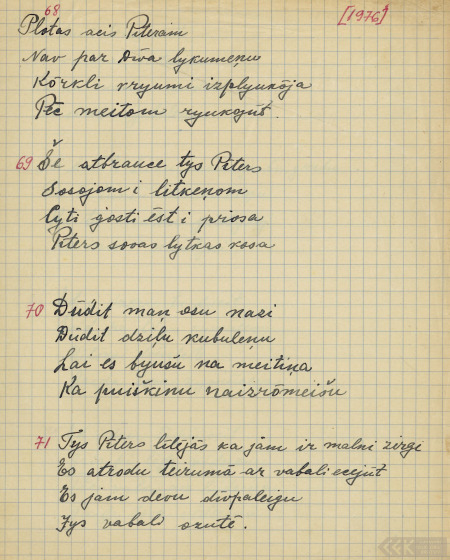 68
[1976]
Plotas acis Pīteram
Nav par Dīva lykumeņu
Kōrkli rryumi izplyukōja
Pēc meitom ryukojūt.
69 Še atbrauce tys Pīters
Sosojom i litkeņom
Cyti gosti ēst i prosa
Pīters sovas lytkas kosa
70 Dūdit maņ osu nazi
Dūdit dzilu kubuleņu
Lai es byušu na meitiņa
Ka puiškinu naizrōmeišu
71 Tys Pīters lilējās ka jām ir malni zirgi
Es atrodu teirumā ar vabali ecejūt
Es jām devu divpaleigu
Tys vabali ozutē.